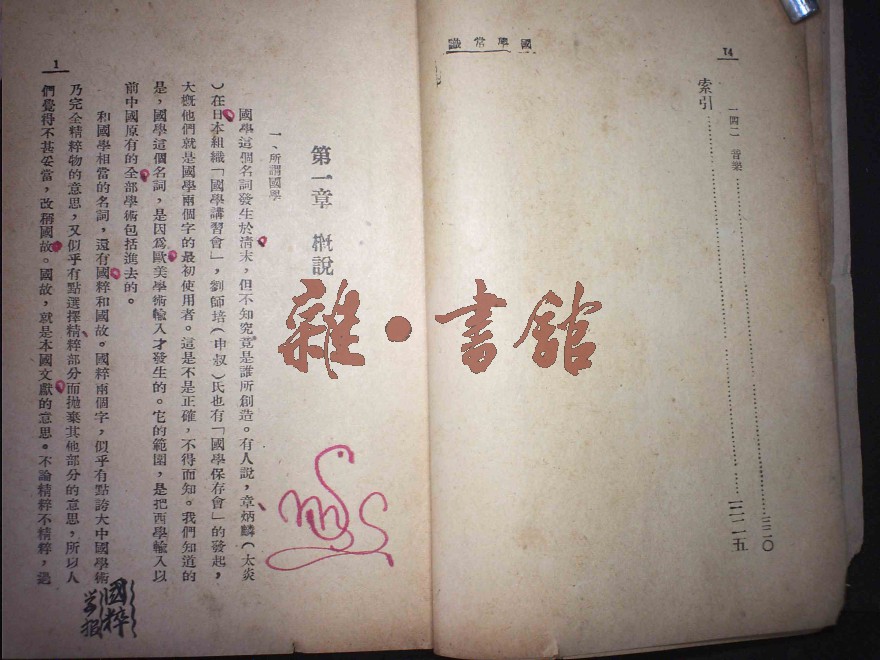 14
國學常識
一四二 音樂……三二〇
索引……三二五
第一章 概說
一、所謂國學
國學這個名詞發生於清末，但不知究竟是誰所創造。有人說，章炳麟（太炎
）在日本組織「國學講習會」，劉師培（申叔）氏也有「國學保存會」的發起，
大概他們就是國學兩個字的最初使用者。這是不是正確，不得而知。我們知道的
是，國學這個名詞，是因爲歐美學術輸入才發生的。它的範圍，是把西學輸入以
前中國原有的全部學術包括進去的。
和國學相當的名詞，還有國粹和國故。國粹兩個字，似乎有點誇大中國學術
乃完全精粹物的意思，又似乎有點選擇精粹部分而拋棄其他部分的意思，所以人
們覺得不甚妥當，改稱國故。國故，就是本國文獻的意思。不論精粹不精粹，過
1
國粹
学报
雜·書館